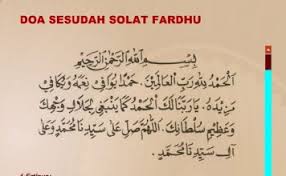 DOA SESUDAH SOLAT FARDHU
بِسْمِ اللهِ الرَّحْمٰنِ الرَّحِيْمِ
اَلْحَمْدُ لِلّٰهِ رَبِّ الْعَالَمِيْنَ. حَمْدًا يُوَافِيْ نِعَمَهُ وَيُكَافِيْ
مَزِيْدَهُ. يَا رَبَّنَا لَكَ الْحَمْدُ كَمَا يَنْبَغِيْ لِجَلَالِ وَجْهِكَ
وَعَظِيْمِ سُلْطَانِكَ. اَللّٰهُمَّ صَلِّ عَلَى سَيِّدِنَا مُحَمَّدٍ وَعَلَى
اٰلِ سَيِّدِنَا مُحَمَّدٍ.